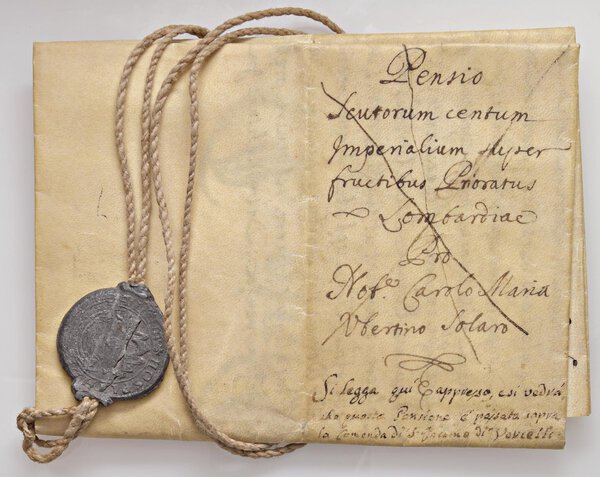 Pensio
Scutorum centum
Imperialium super
fructibus Prioratus
Lombardiae
Pro
Nob.e Carolo Maria
Ubertino Solaro
Si legga qui appresso, e si vedrà
che queste Pensione è passata sopra
la Comenda di S. Giacomo di Vercelli